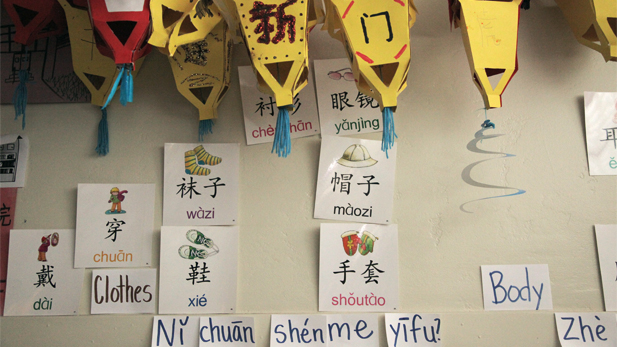 新
门
衬衫
chènshān
眼镜
yǎnjìng
袜子
wàzi
帽子
màozi
穿
chuān
戴
dài
Clothes
鞋
xié
手套
shǒutào
Body
Nǐ chuān shénme yīfu?
Zhè